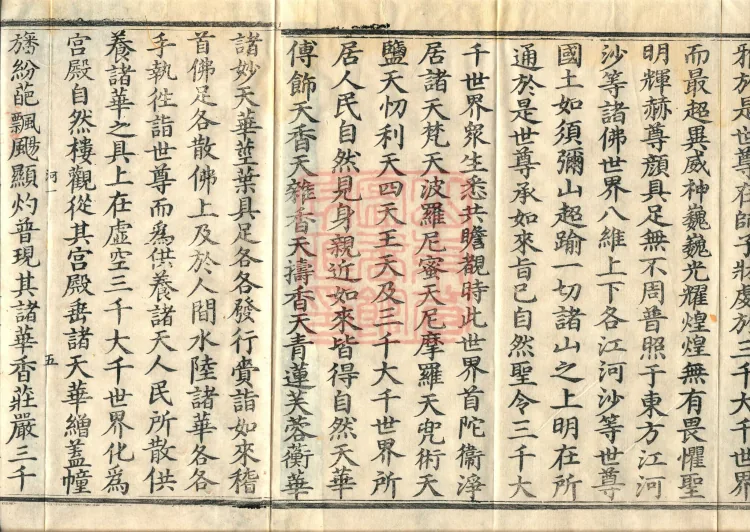 邪於是世尊在師子牀處於三千大千世界
而最超異威神巍巍光耀煌煌無有畏懼聖
明輝赫尊顏具足無不周普照于東方江河
沙等諸佛世界八維上下各江河沙等世尊
國土如須彌山超踰一切諸山之上明在所
通於是世尊承如來旨已自然聖令三千大
千世界衆生悉共瞻觀時此世界首陀衞淨
居諸天梵天波羅尼蜜天尼摩羅天兜術天
鹽天忉利天四天王天及三千大千世界所
居人民自然見身親近如來皆得自然天華
傅飾天香天雜香天擣香天青蓮芙蓉蘅華
諸妙天華莖葉具足各各發行賫詣如來稽
首佛足各散佛上及於人間水陸諸華各各
手執往詣世尊而爲供養諸天人民所散供
養諸華之具上在虛空三千大千世界化爲
宮殿自然樓觀從其宮殿垂諸天華繒蓋幢
河一 五
旛紛葩飄颺顯灼普現其諸華香莊嚴三千